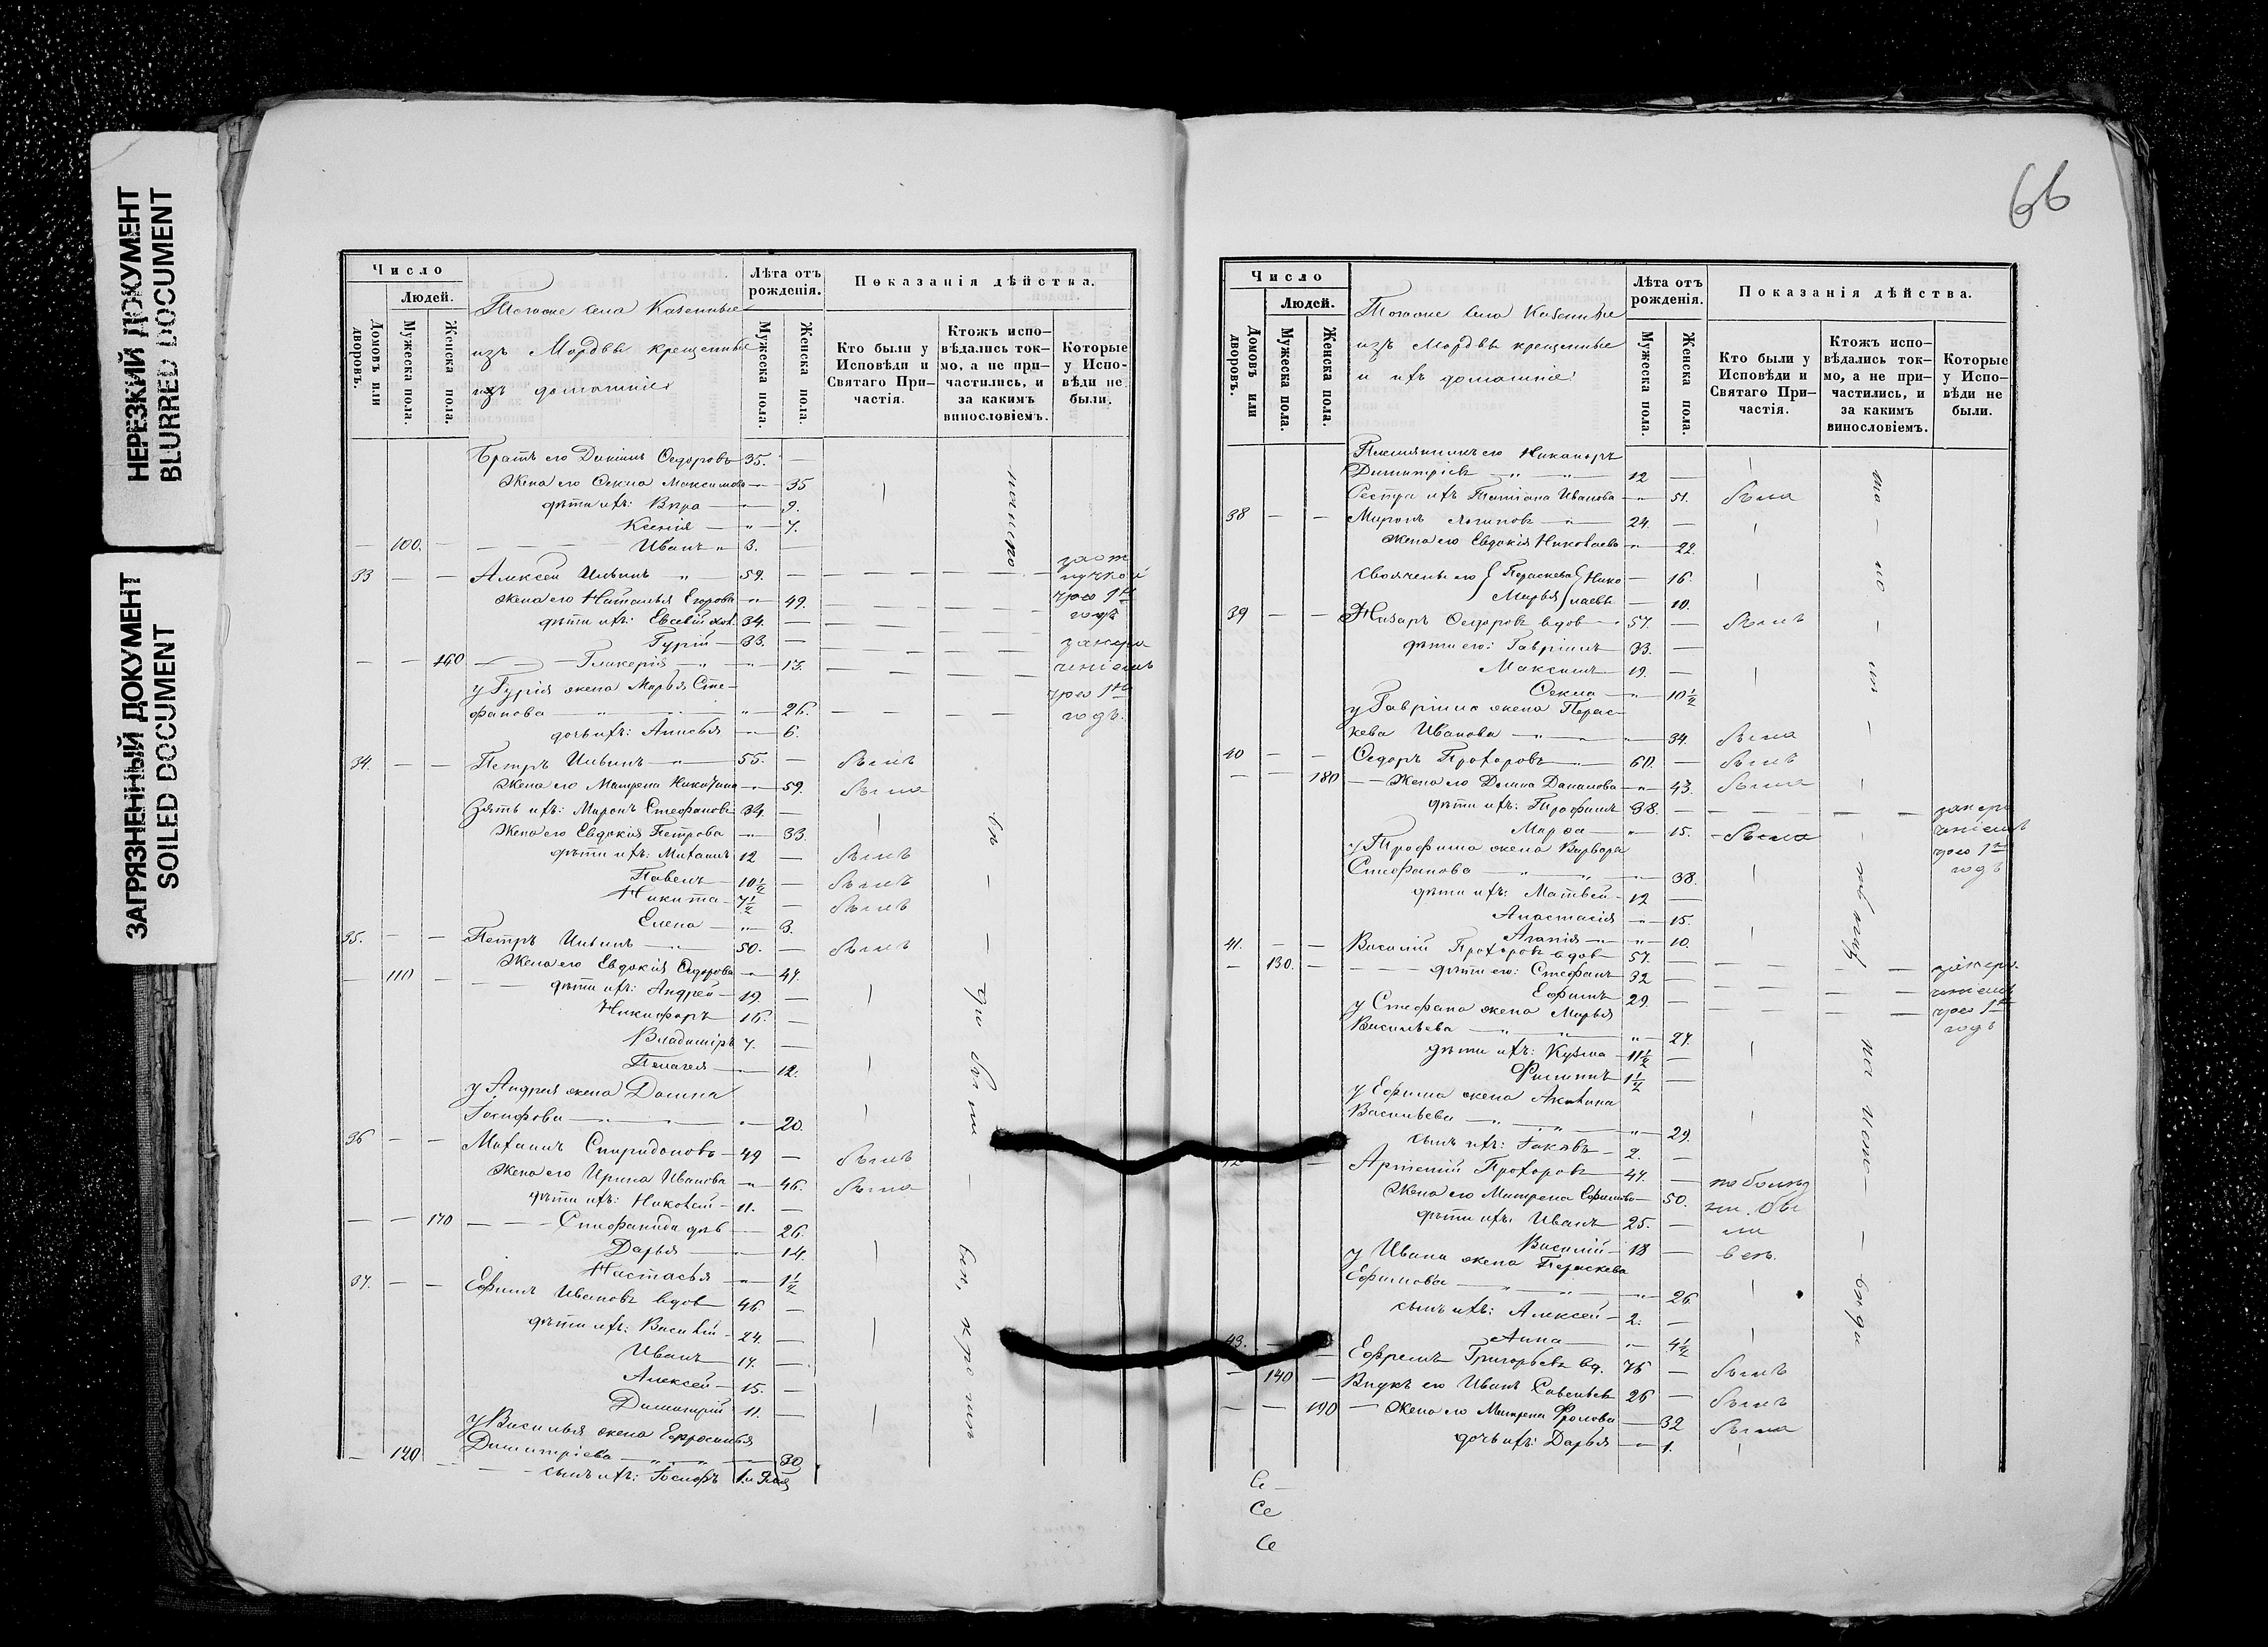 НЕРЕЗКИЙ ДОКУМЕНТ
BLURRED DOCUMENT
ЗАГРЯЗНЕННЫЙ ДОКУМЕНТ
SOILED DOCUMENT
Число
Людей.
Домовъ или дворовъ.
Мужеска пола.
Женска пола.
Тогоже села Казенные
изъ Мордвы крещенные
домашніе
Лѣта отъ рожденія.
Мужеска пола.
Женска пола.
Показанія дѣйства.
Кто были у Исповѣди и Святаго Причастія.
Ктожъ исповѣдались токмо, а не причастились, и за какимъ винословіемъ.
Которые у Исповѣди не были.
Братъ его Федоровъ 35.
Жена его Фекла Максимова 35
дѣти ихъ: Вѣра 9.
Ксенія 7.
100. Иванъ 3.
33 Алексей Ильинъ 59.
жена его Наталья Егорова 49.
дѣти ихъ: Евсевій 34.
Гурій 33.
Гликерія 17.
у Гурія жена Марья Сте-
фанова 26.
дочь ихъ: 6.
34. Петръ Ильинъ 55. былъ
Жена его Матрена Никитина 59. была
Зять ихъ: Миронъ Стефановъ 34.
Жена его Евдокія Петрова 33.
дѣти ихъ: Михаилъ 12 былъ
Павелъ 10½ былъ
Никита 7½ былъ
Елена 3.
35. Петръ Ильинъ 50. былъ
110 Жена его Евдокія Федорова 47.
дѣти ихъ: Андрей 19.
Никифоръ 16.
Владиміръ 7.
Пелагея 12.
у Андрея жена Домна
Іосифова 20.
36 Михаилъ Спиридоновъ 49 былъ
Жена его Ирина Иванова 46. была
дѣти ихъ: Николай 11.
170 Стефанида 26.
Дарья 14.
Настасья 1½
37. Ефимъ Ивановъ вдов 46.
дѣти ихъ: Василій 24.
Иванъ 17.
Алексей 15.
Димитрій 11.
у Василья жена Ефросинья
Димитріева 30
120 сынъ ихъ: Іосифъ
66
Число
Людей.
Домовъ или дворовъ.
Мужеска пола.
Женска пола.
Тогоже села Казенные
изъ Мордвы крещенные
и ихъ домашніе
Лѣта отъ рожденія.
Мужеска пола.
Женска пола.
Показанія дѣйства.
Кто были у Исповѣди и Святаго Причастія.
Ктожъ исповѣдались токмо, а не причастились, и за какимъ винословіемъ.
Которые у Исповѣди не были.
Племянникъ его Никаноръ
Димитріевъ 12
Сестра ихъ Татіана Иванова 51. была
38 Миронъ Логиновъ 24.
жена его Евдокія Николаева 22.
свояченъ его Параскева Нико 16.
Марья лаевы 10.
39 Назаръ Федоровъ вдов 57. былъ
дѣти его: Гавріилъ 33.
Максимъ 19.
Фекла 10½
у Гавріила жена Парас-
кева Иванова 34. была
40 Федоръ Прохоровъ 60. былъ
180 Жена его Домна Данилова 43. была
дѣти ихъ: Трофимъ 38.
Марфа 15. была
у Трофима жена Варвара
Стефанова 38.
дѣти ихъ: Матвей 12
Анастасія 15.
Агапія 10.
41. Василій Прохоровъ вдов 57.
130. дѣти его: Стефанъ 32
Ефимъ 29.
у Стефана жена Марья
Васильева 27.
дѣти ихъ: Кузма 11½
Филиппъ 1½
у Ефима жена Акилина
Васильева 29.
сынъ ихъ: Іаковъ 2.
Артемій Прохоровъ 47.
Жена его Матрена Ефимова 50.
дѣти ихъ: Иванъ 25.
Василій 18
у Ивана жена Параскева
Ефимова 26.
сынъ ихъ: Алексей 2.
Анна 4½
43. Ефремъ Григорьевъ вд. 76 былъ
140 Внукъ его Иванъ Савельевъ 26 былъ
190 Жена его Матрена Фролова 32 была
дочь ихъ: Дарья 1.